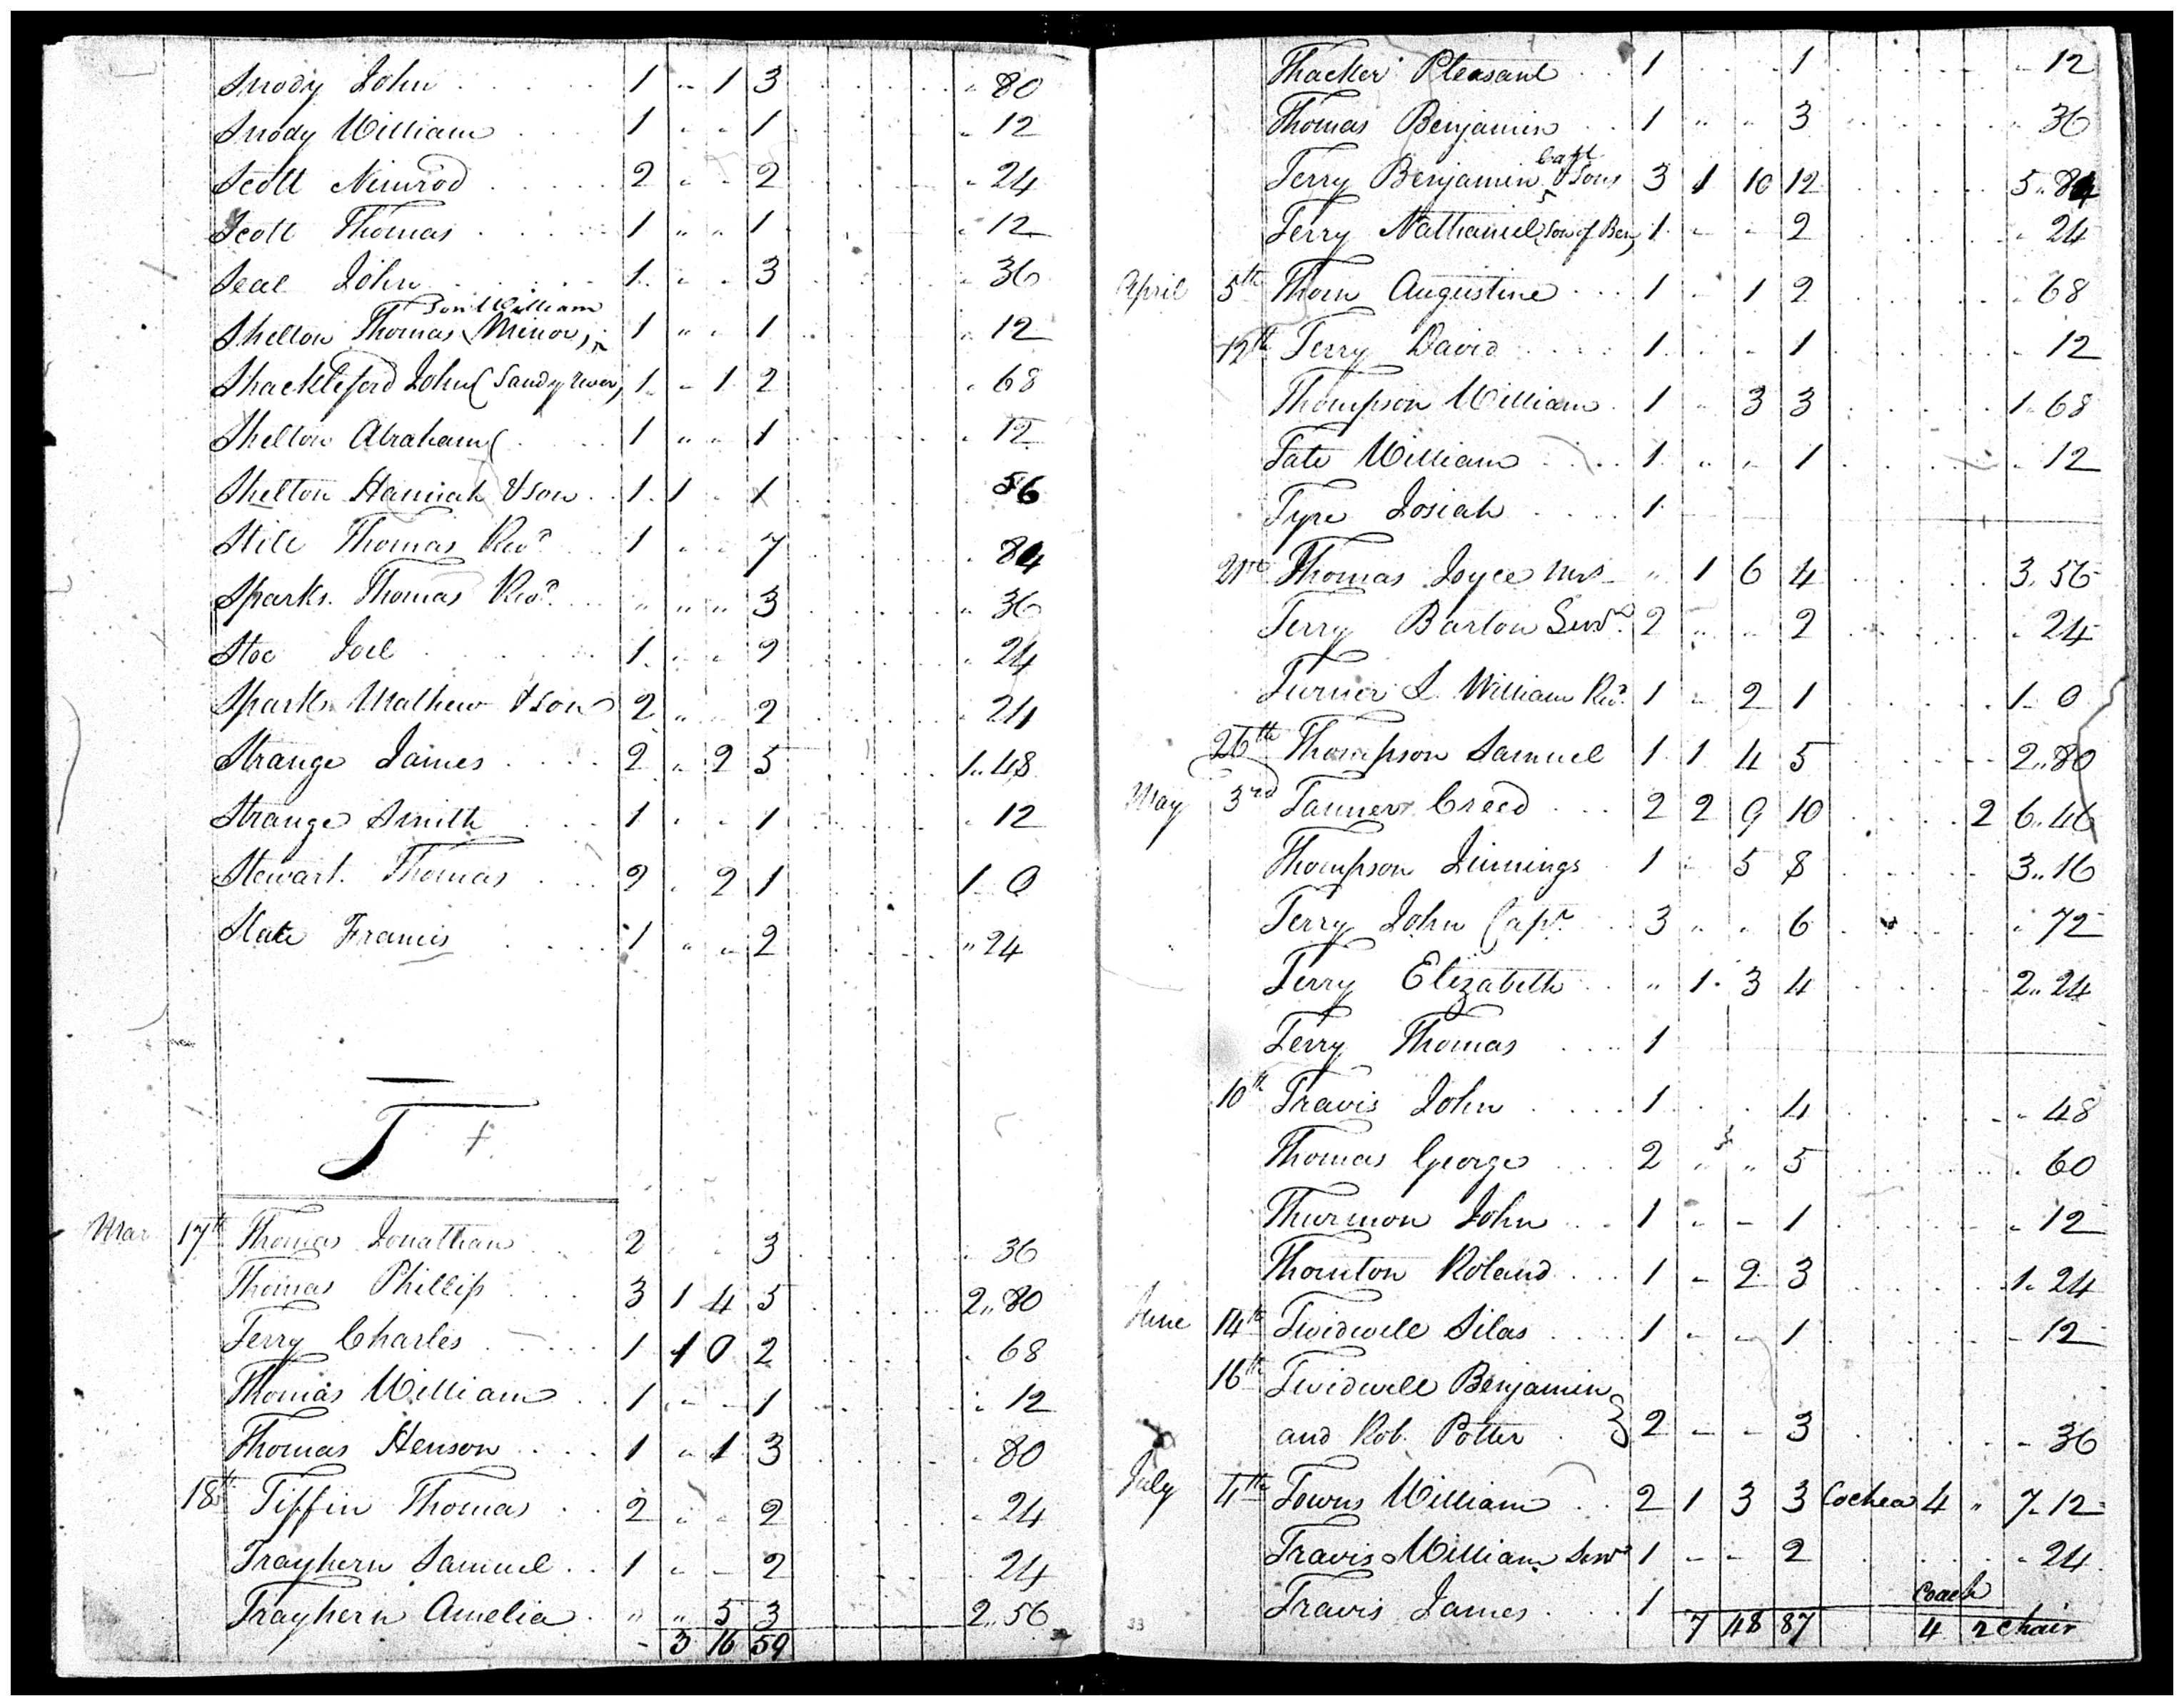 Snody John 1 " 1 3 " 80
Snody William 1 " " 1 " 12
Scott Nimrod 2 " " 2 " 24
Scott Thomas 1 " " 1 " 12
Seal John 1 " " 3 " 36
Son William
Shelton Thomas Minor 1 " " 1 " 12
Shackleford John (Sandy River) 1 " 1 2 " 68
Shelton Abraham 1 " " 1 " 12
Shelton Hannah & son 1 1 " 1 56
Still Thomas Revd 1 " " 7 84
Sparks Thomas Revd " " " 3 " 36
Stoe Joel 1 " " 2 " 24
Sparks Mathew & son 2 " " 2 " 24
Strange James 2 " 2 5 1.. 48
Strange Smith 1 " " 1 " 12
Stewart Thomas 2 " 2 1 1 0
Slate Francis 1 " " 2 " 24
T
Mar 17th Thomas Jonathan 2 " " 3 " 36
Thomas Phillip 3 1 4 5 2.. 80
Terry Charles 1 1 0 2 " 68
Thomas William 1 " " 1 " 12
Thomas Henson 1 " 1 3 " 80
18th Tiffin Thomas 2 " " 2 " 24
Trayhern Samuel 1 " " 2 24
Trayhern Amelia " " 5 3 2.. 56
3 16 59
Thacker Pleasant 1 1 " 12
Thomas Benjamin 1 " " 3 " 36
Capt
Terry Benjamin & Sons 3 1 10 12 5.. 84
Terry Nathaniel (Son of Ben) 1 " " 2 " 24
April 5th Thorn Augustine 1 " 1 2 " 68
12th Terry David 1 " " 1 " 12
Thompson William 1 " 3 3 1. 68
Tate William 1 " " 1 " 12
Tyre Josiah 1
21st Thomas Joyce Mrs " 1 6 4 3. 56
Terry Barton Senr 2 " " 2 " 24
Turner S. William Revd 1 " 2 1 1 " 0
26th Thompson Samuel 1 1 4 5 2.. 80
May 3rd Tanner Creed 2 2 9 10 2 6.. 46
Thompson Jinnings 1 " 5 8 3.. 16
Terry John Capt 3 " " 6 " 72
Terry Elizabeth " 1 3 4 2.. 24
Terry Thomas 1
10th Travis John 1 4 " 48
Thomas George 2 " " 5 " 60
Thurmon John 1 " " 1 " 12
Thornton Roland 1 " 2 3 1.. 24
June 14th Twidwell Silas 1 " " 1 " 12
16th Twidwell Benjamin
and Rob. Potter 2 " " 3 " 36
July 4th Towns William 2 1 3 3 Cochea 4 " 7.. 12
Travis William Senr 1 " " 2 " 24
Travis James 1
Coach
33 7 48 87 4 2 chair